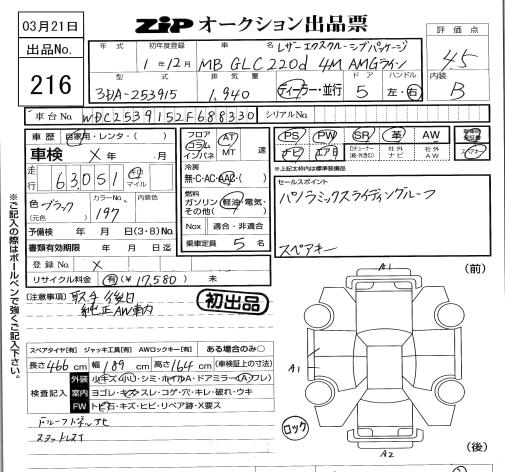 03月21日
ZIP オークション出品票
出品No.
216
評価点
4.5
内装
B
年式 初年度登録 車名 レザーエクスクルーシブパッケージ
1年12月 MB GLC220d 4M AMGライン
型式 排気量 ドア ハンドル
3DA-253915 1,940 ディーラー・並行 5 左・右
車台No. WDC2539152F688330 シリアルNo.
車歴 自家用・レンタ・( )
車検 X 年 月
走行 63,051 キロ マイル
色 ブラック (元色) カラーNo. 197 内装色
予備検 年 月 日(3・8)No.
書類有効期限 年 月 日迄
登録No. X
リサイクル料金 有(¥17,580) 未
フロア コラム インパネ AT MT 速
冷房 無・C・AC・AAC・( )
燃料 ガソリン・軽油・電気・その他( )
Nox 適合・非適合
乗車定員 5 名
PS PW SR 革 AW
ナビ エアB Dチューナー 社外ナビ 社外AW
*上記太枠内は標準装備品
セールスポイント
パノラミックスライディングルーフ
スペアキー
[注意事項]
純正AW車内
初出品
スペアタイヤ[有] ジャッキ工具[有] AWロックキー[有] ある場合のみ○
長さ466cm 幅189cm 高さ164cm (車検証上の寸法)
検査記入
外装 小キズ・小凹・シミ・ホイルA・ドアミラー(A)ワレ)
室内 ヨゴレ・キズ・スレ・コゲ・穴・キレ・破れ・ウキ
FW トビ石・キズ・ヒビ・リペア跡・X要ス
※ご記入の際はボールペンで強くご記入下さい。
(前)
A1
A1
A2
ロック
(後)